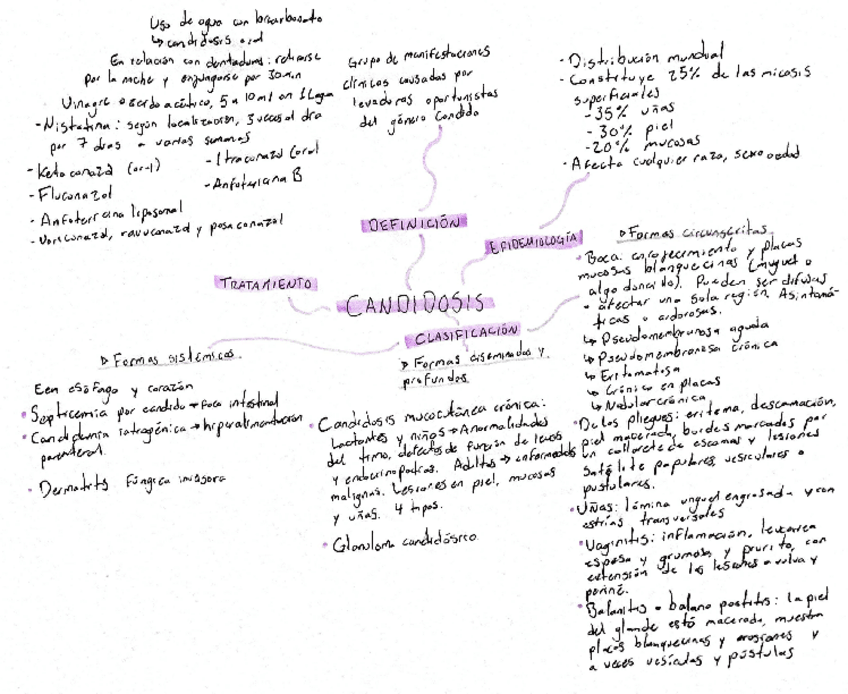 Uso de agua con bicarbonato
↳ candidosis oral
En relación con dentaduras: retirarse
por la noche y enjuagarse por 30 min
Vinagre o ácido acético, 5 a 10 ml en 1 L agua
- Nistatina: según localización, 3 veces al día
por 7 días a varias semanas
- Ketoconazol (or-1)
- Itraconazol (oral
- Fluconazol
- Anfotericina B
- Anfotericina liposomal
- Voriconazol, ravuconazol y posaconazol
TRATAMIENTO
Grupo de manifestaciones
clínicas causadas por
levaduras oportunistas
del género Candida
DEFINICIÓN
- Distribución mundial
- Constituye 25% de las micosis
superficiales
- 35% uñas
- 30% piel
- 20% mucosas
- Afecta cualquier raza, sexo o edad
EPIDEMIOLOGÍA
CANDIDOSIS
CLASIFICACIÓN
▷ Formas sistémicas
En esófago y corazón
• Septicemia por candida → foco intestinal
• Candidemia iatrogénica → hiperalimentación
parenteral
• Dermatitis fúngica invasora
▷ Formas diseminadas y
profundas
• Candidosis mucocutánea crónica:
Lactantes y niños → Anormalidades
del timo, defectos de función de leucos
y endocrinopatías. Adultos → enfermedades
malignas. Lesiones en piel, mucosas
y uñas. 4 tipos.
• Granuloma candidósico
▷ Formas circunscritas
• Boca: enrojecimiento y placas
mucosas blanquecinas (muguet o
algodoncillo). Pueden ser difusas
o afectar una sola región. Asintomá-
ticas o ardorosas.
↳ Pseudomembranosa aguda
↳ Pseudomembranosa crónica
↳ Eritematosa
↳ Crónica en placas
↳ Nodular crónica
• De los pliegues: eritema, descamación,
piel macerada, bordes marcados por
un collarete de escamas y lesiones
satélite papulares, vesiculares o
pustulares.
• Uñas: lámina ungueal engrosada y con
estrías transversales
• Vaginitis: inflamación, leucorrea
espesa y grumosa y prurito, con
extensión de las lesiones a vulva y
periné.
• Balanitis o balanopostitis: la piel
del glande está macerada, muestra
placas blanquecinas y erosiones y
a veces vesículas y pústulas